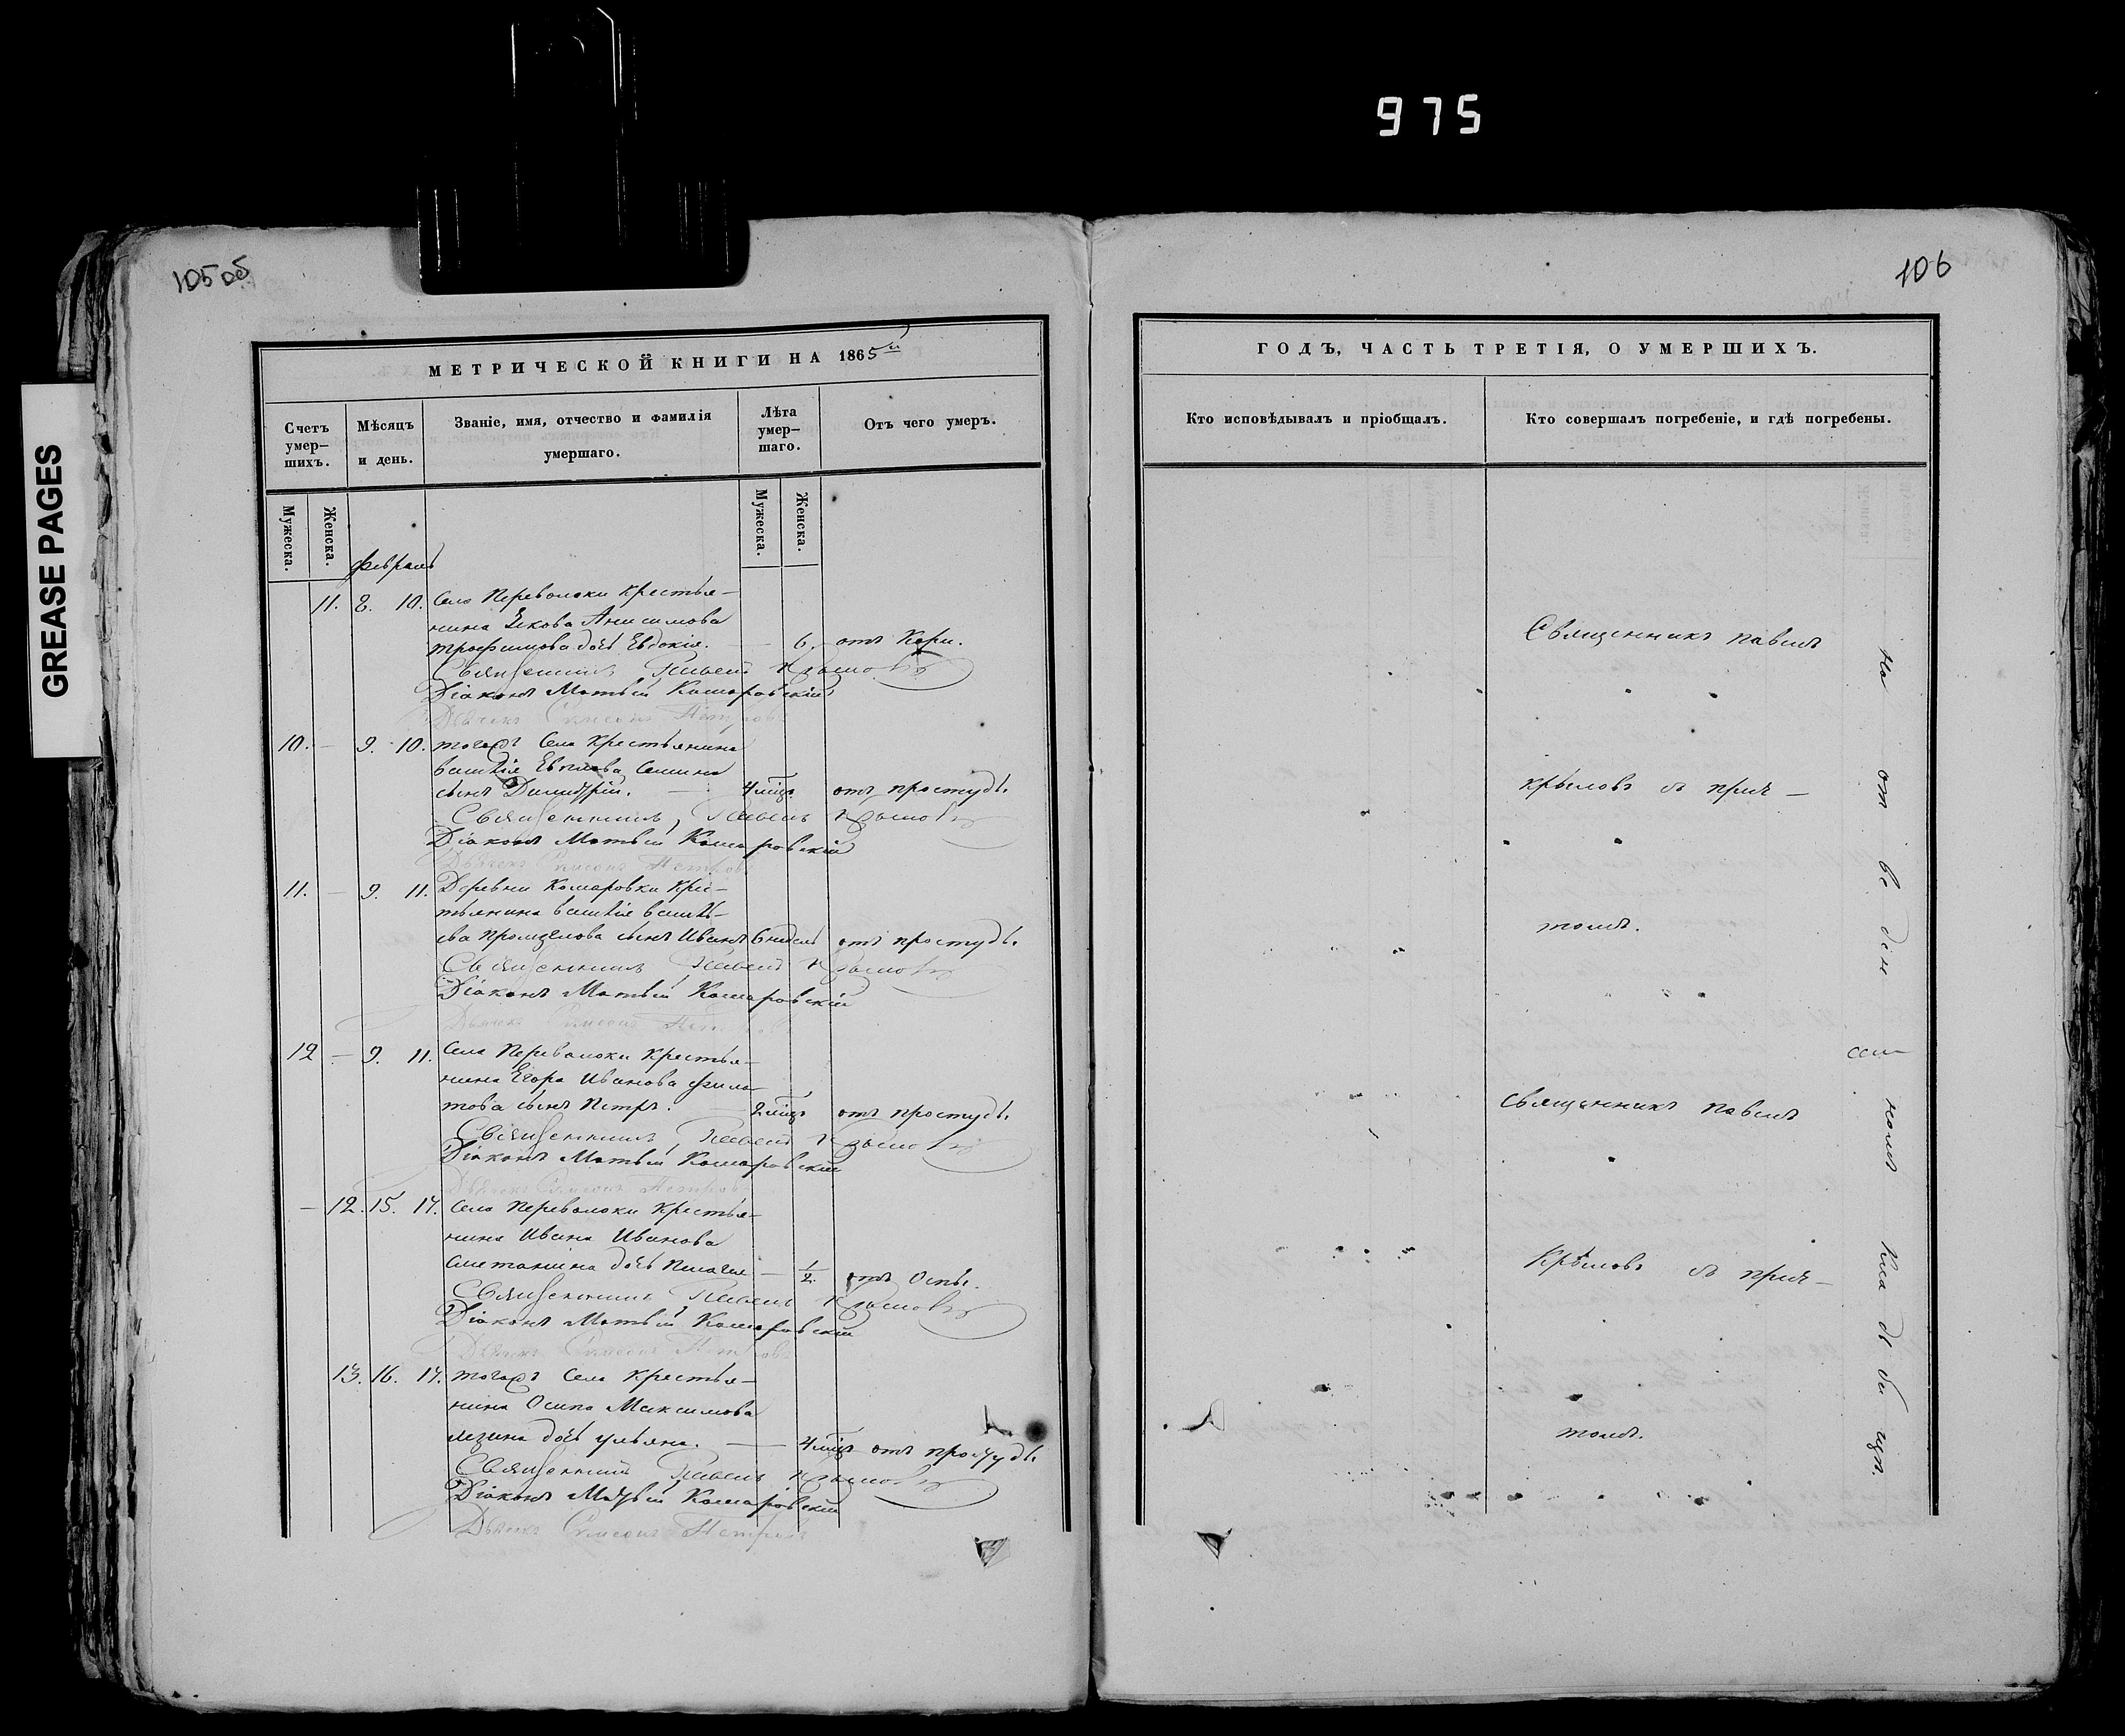 975
105 об
106
GREASE PAGES
МЕТРИЧЕСКОЙ КНИГИ НА 1865й
Счетъ умер-
шихъ.
Мѣсяцъ
и день.
Званіе, имя, отчество и фамилія
умершаго.
Лѣта
умер-
шаго.
Отъ чего умеръ.
Мужеска.
Женска.
Мужеска.
Женска.
февраль
11. 8. 10. Села Переволоки Крестья-
нина Якова Анисимова
трофимова дочь Евдокія. — 6. отъ Кори.
Священникъ Павелъ Крыловъ
Діаконъ Матвѣй Комаровскій
Дьячекъ Симеонъ Петровъ
10. — 9. 10. тогожъ Села Крестьянина
Сынъ Димитрій. — 4 мцъ отъ простуды.
Священникъ Павелъ Крыловъ
Діаконъ Матвѣй Комаровскій
Дьячекъ Симеонъ Петровъ
11. — 9. 11. Деревни Комаровки Крес-
тьянина
сынъ Иванъ 6 недель отъ простуды.
Священникъ Павелъ Крыловъ
Діаконъ Матвѣй Комаровскій
Дьячекъ Симеонъ Петровъ
12 — 9. 11. Села Переволоки Крестья-
нина Егора Иванова фила-
това сынъ Петръ. 2 мцъ отъ простуды.
Священникъ Павелъ Крыловъ
Діаконъ Матвѣй Комаровскій
Дьячекъ Симеонъ Петровъ
— 12. 15. 17. Села Переволоки Крестья-
нина Ивана Иванова
Сметанина дочь Пелагея — 1/2. отъ Оспы.
Священникъ Павелъ Крыловъ
Діаконъ Матвѣй Комаровскій
Дьячекъ Симеонъ Петровъ
13. 16. 17. тогожъ Села Крестья-
нина Осипа Максимова
лезина дочь ульяна. — 4 мцъ отъ простуды.
Священникъ Павелъ Крыловъ
Діаконъ Матвѣй Комаровскій
Дьячекъ Симеонъ Петровъ
ГОДЪ, ЧАСТЬ ТРЕТІЯ, О УМЕРШИХЪ.
Кто исповѣдывалъ и пріобщалъ.
Кто совершалъ погребеніе, и гдѣ погребены.
Священникъ Павелъ
Крыловъ съ прич-
томъ.
Священникъ Павелъ
Крыловъ съ прич-
томъ.
На отведенномъ Кладбищѣ.